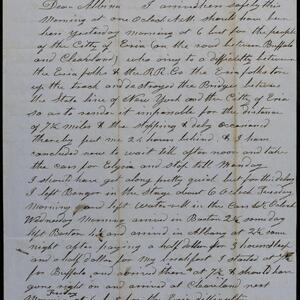 Dear Albina I arrived here safely this
Morning at one O clock A.M. should have been
hear yesterday morning at 6 but for the people
of the Citty of Eria (on the road between Buffalo
and Cleaveland) who owing to a difficulty between
the Eria folks & the RR Co the Eria folks tore
up the track and destroyed the Bridges between
the State line of New York and the Citty of Eria
so as to render it impassable for the distance
of 7½ miles & the stopping & delay occasioned
there by put me 22 hours behind. & I have
concluded now to wait till after noon and take
the Cars for Elyria and stop till Monday
I should have got along pretty quick but for the delay
I left Bangor in the Stage about 6 O clock Tuesday
morning and left Waterville in the Cars at O clock
Wednesday Morning arrived in Boston same day
left Boston and arived in Albany at same
night after paying a half dollar for 3 hours sleep
and a half dollar for my breakfast I started at
for Buffalo and arrived there at & should have
gone right on and arrived at Cleaveland next
Friday